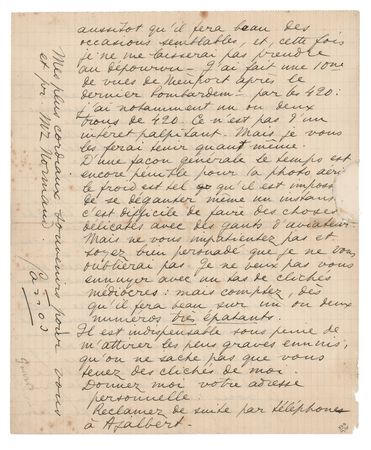 aussitôt qu'il fera beau des
occasions semblables, et, cette fois
je ne me laisserai pas prendre
au dépourvu — J'ai fait une 10ne
de vues de Nieuport après le
dernier bombardemt par les 420:
j'ai notamment un ou deux
trous de 420. Ce n'est pas d'un
intérêt palpitant. Mais je vous
les ferai tenir quant même.
D'une façon générale le temps est
encore peu utile pour la photo aéri
le froid est tel qu'il est imposs
de se déganter même un instant
c'est difficile de faire des choses
délicates avec des gants d'aviateur.
Mais ne vous impatientez pas et
soyez bien persuadé que je ne vous
oublierai pas. Je ne veux pas vous
ennuyer avec un tas de clichés
médiocres: mais comptez, dès
qu'il fera beau sur un ou deux
numéros très épatants.
Il est indispensable sous peine de
m'attirer les plus graves ennuis,
qu'on ne sache pas que vous
tenez des clichés de moi.
Donnez moi votre adresse
personnelle.
Réclamez de suite par téléphone
à Ajalbert.
Mes plus cordiaux souvenirs pour vous
et pr Mr Normand.